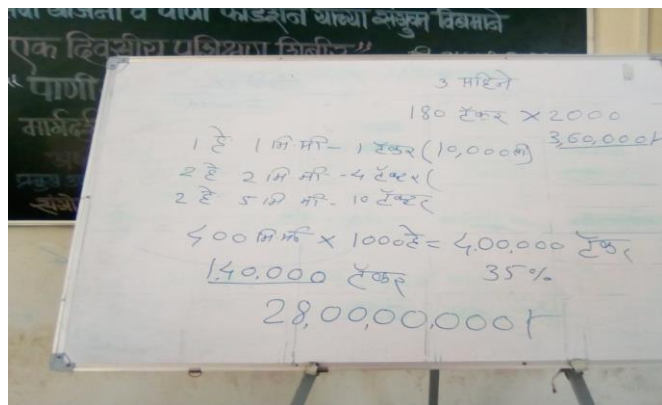 योजना व पाणी फाउंडेशन यांच्या संयुक्त विद्यमाने
एक दिवसीय प्रशिक्षण शिबीर"
" पाणी
3 महिने
180 टँकर × 2000
3,60,000/-
1 हे 1 मि.मी - 1 टँकर (10,000ली)
2 हे 2 मि मी - 4 टँकर (
2 हे 5 मि मी - 10 टँकर
400 मि.मी × 1000हे = 4,00,000 टँकर
1,40,000 टँकर 35%
28,00,00,000/-